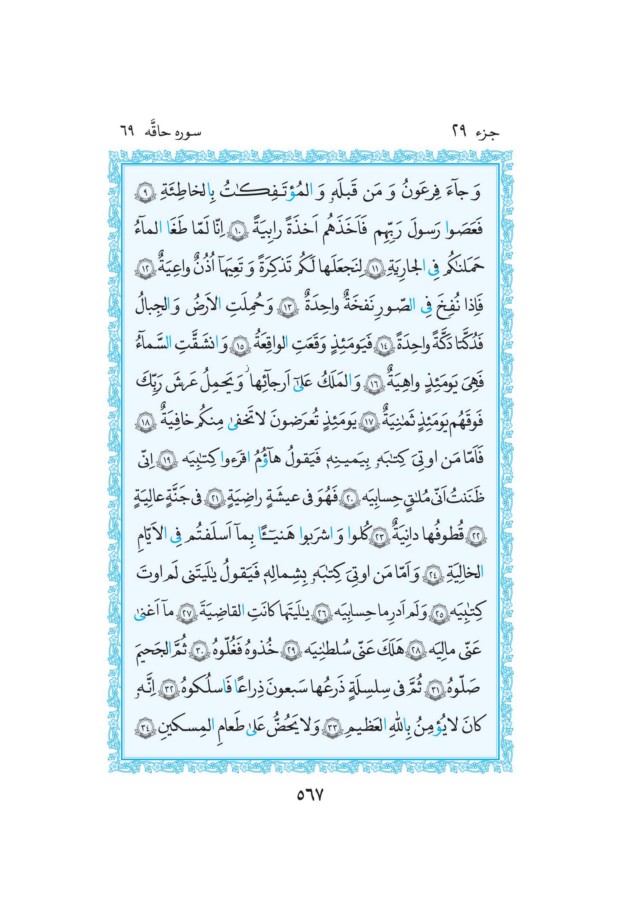 جزء ٢٩
سوره حاقَّه ٦٩
وَ جآءَ فِرعَونُ وَ مَن قَبلَهُ وَ المُؤتَفِكـٰتُ بِالخاطِئَةِ ﴿٩﴾
فَعَصَوا رَسولَ رَبِّهِم فَاَخَذَهُم اَخذَةً رابِيَةً ﴿١٠﴾ اِنّا لَمّا طَغَا المآءُ
حَمَلنـٰكُم فِى الجارِيَةِ ﴿١١﴾ لِنَجعَلَها لَكُم تَذكِرَةً وَ تَعِيَهآ اُذُنٌ واعِيَةٌ ﴿١٢﴾
فَاِذا نُفِخَ فِى الصّورِ نَفخَةٌ واحِدَةٌ ﴿١٣﴾ وَ حُمِلَتِ الاَرضُ وَ الجِبالُ
فَدُكَّتا دَكَّةً واحِدَةً ﴿١٤﴾ فَيَومَئِذٍ وَقَعَتِ الواقِعَةُ ﴿١٥﴾ وَ انشَقَّتِ السَّمآءُ
فَهِىَ يَومَئِذٍ واهِيَةٌ ﴿١٦﴾ وَ المَلَكُ عَلىٰٓ اَرجآئِها ۚ وَ يَحمِلُ عَرشَ رَبِّكَ
فَوقَهُم يَومَئِذٍ ثَمـٰنِيَةٌ ﴿١٧﴾ يَومَئِذٍ تُعرَضونَ لا تَخفىٰ مِنكُم خافِيَةٌ ﴿١٨﴾
فَاَمّا مَن اوتِىَ كِتـٰبَهُ بِيَمينِهِ فَيَقولُ هآؤُمُ اقرَءوا كِتـٰبِيَه ﴿١٩﴾ اِنّى
ظَنَنتُ اَنّى مُلـٰقٍ حِسابِيَه ﴿٢٠﴾ فَهُوَ فى عيشَةٍ راضِيَةٍ ﴿٢١﴾ فى جَنَّةٍ عالِيَةٍ
﴿٢٢﴾ قُطوفُها دانِيَةٌ ﴿٢٣﴾ كُلوا وَ اشرَبوا هَنيـًٔا بِمآ اَسلَفتُم فِى الاَيّامِ
الخالِيَةِ ﴿٢٤﴾ وَ اَمّا مَن اوتِىَ كِتـٰبَهُ بِشِمالِهِ فَيَقولُ يـٰلَيتَنى لَم اوتَ
كِتـٰبِيَه ﴿٢٥﴾ وَ لَم اَدرِ ما حِسابِيَه ﴿٢٦﴾ يـٰلَيتَها كانَتِ القاضِيَةَ ﴿٢٧﴾ مآ اَغنىٰ
عَنّى مالِيَه ﴿٢٨﴾ هَلَكَ عَنّى سُلطـٰنِيَه ﴿٢٩﴾ خُذوهُ فَغُلّوهُ ﴿٣٠﴾ ثُمَّ الجَحيمَ
صَلّوهُ ﴿٣١﴾ ثُمَّ فى سِلسِلَةٍ ذَرعُها سَبعونَ ذِراعًا فَاسلُكوهُ ﴿٣٢﴾ اِنَّهُ
كانَ لا يُؤمِنُ بِاللهِ العَظيمِ ﴿٣٣﴾ وَ لا يَحُضُّ عَلىٰ طَعامِ المِسكينِ ﴿٣٤﴾
٥٦٧